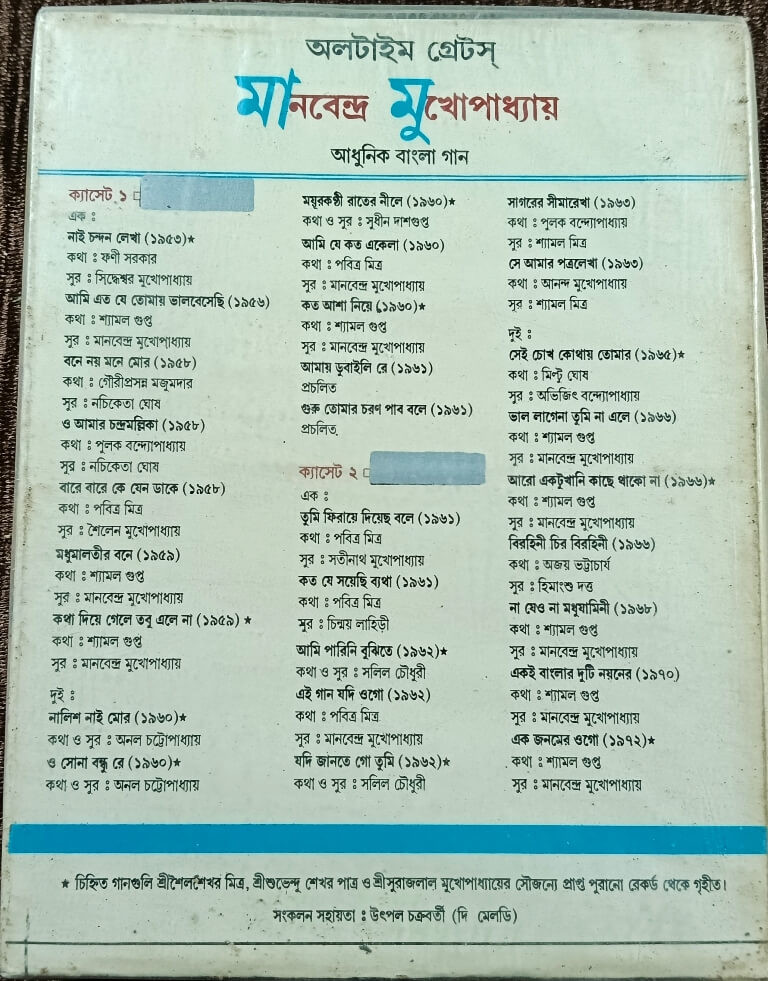 অলটাইম গ্রেটস্
মানবেন্দ্র মুখোপাধ্যায়
আধুনিক বাংলা গান
ক্যাসেট ১
এক :
নাই চন্দন লেখা (১৯৫৩)★
কথা : ফণী সরকার
সুর : সিদ্ধেশ্বর মুখোপাধ্যায়
আমি এত যে তোমায় ভালবেসেছি (১৯৫৬)
কথা : শ্যামল গুপ্ত
সুর : মানবেন্দ্র মুখোপাধ্যায়
বনে নয় মনে মোর (১৯৫৮)
কথা : গৌরীপ্রসন্ন মজুমদার
সুর : নচিকেতা ঘোষ
ও আমার চন্দ্রমল্লিকা (১৯৫৮)
কথা : পুলক বন্দ্যোপাধ্যায়
সুর : নচিকেতা ঘোষ
বারে বারে কে যেন ডাকে (১৯৫৮)
কথা : পবিত্র মিত্র
সুর : শৈলেন মুখোপাধ্যায়
মধুমালতীর বনে (১৯৫৯)
কথা : শ্যামল গুপ্ত
সুর : মানবেন্দ্র মুখোপাধ্যায়
কথা দিয়ে গেলে তবু এলে না (১৯৫৯) ★
কথা : শ্যামল গুপ্ত
সুর : মানবেন্দ্র মুখোপাধ্যায়
দুই :
নালিশ নাই মোর (১৯৬০)★
কথা ও সুর : অনল চট্টোপাধ্যায়
ও সোনা বন্ধু রে (১৯৬০)★
কথা ও সুর : অনল চট্টোপাধ্যায়
ময়ূরকণ্ঠী রাতের নীলে (১৯৬০)★
কথা ও সুর : সুধীন দাশগুপ্ত
আমি যে কত একেলা (১৯৬০)
কথা : পবিত্র মিত্র
সুর : মানবেন্দ্র মুখোপাধ্যায়
কত আশা নিয়ে (১৯৬০)★
কথা : শ্যামল গুপ্ত
সুর : মানবেন্দ্র মুখোপাধ্যায়
আমায় ডুবাইলি রে (১৯৬১)
প্রচলিত
গুরু তোমার চরণ পাব বলে (১৯৬১)
প্রচলিত
ক্যাসেট ২
এক :
তুমি ফিরায়ে দিয়েছ বলে (১৯৬১)
কথা : পবিত্র মিত্র
সুর : সতীনাথ মুখোপাধ্যায়
কত যে সয়েছি ব্যথা (১৯৬১)
কথা : পবিত্র মিত্র
সুর : চিন্ময় লাহিড়ী
আমি পারিনি বুঝিতে (১৯৬২)★
কথা ও সুর : সলিল চৌধুরী
এই গান যদি ওগো (১৯৬২)
কথা : পবিত্র মিত্র
সুর : মানবেন্দ্র মুখোপাধ্যায়
যদি জানতে গো তুমি (১৯৬২)★
কথা ও সুর : সলিল চৌধুরী
সাগরের সীমারেখা (১৯৬৩)
কথা : পুলক বন্দ্যোপাধ্যায়
সুর : শ্যামল মিত্র
সে আমার পত্রলেখা (১৯৬৩)
কথা : আনন্দ মুখোপাধ্যায়
সুর : শ্যামল মিত্র
দুই :
সেই চোখ কোথায় তোমার (১৯৬৫)★
কথা : মিল্টু ঘোষ
সুর : অভিজিৎ বন্দ্যোপাধ্যায়
ভাল লাগেনা তুমি না এলে (১৯৬৬)
কথা : শ্যামল গুপ্ত
সুর : মানবেন্দ্র মুখোপাধ্যায়
আরো একটুখানি কাছে থাকো না (১৯৬৬)★
কথা : শ্যামল গুপ্ত
সুর : মানবেন্দ্র মুখোপাধ্যায়
বিরহিনী চির বিরহিনী (১৯৬৬)
কথা : অজয় ভট্টাচার্য
সুর : হিমাংশু দত্ত
না যেও না মধুযামিনী (১৯৬৮)
কথা : শ্যামল গুপ্ত
সুর : মানবেন্দ্র মুখোপাধ্যায়
একই বাংলার দুটি নয়নের (১৯৭০)
কথা : শ্যামল গুপ্ত
সুর : মানবেন্দ্র মুখোপাধ্যায়
এক জনমের ওগো (১৯৭২)★
কথা : শ্যামল গুপ্ত
সুর : মানবেন্দ্র মুখোপাধ্যায়
★ চিহ্নিত গানগুলি শ্রীশৈলশেখর মিত্র, শ্রীশুভেন্দু শেখর পাত্র ও শ্রীসুরাজলাল মুখোপাধ্যায়ের সৌজন্যে প্রাপ্ত পুরানো রেকর্ড থেকে গৃহীত।
সংকলন সহায়তা : উৎপল চক্রবর্তী (দি মেলডি)